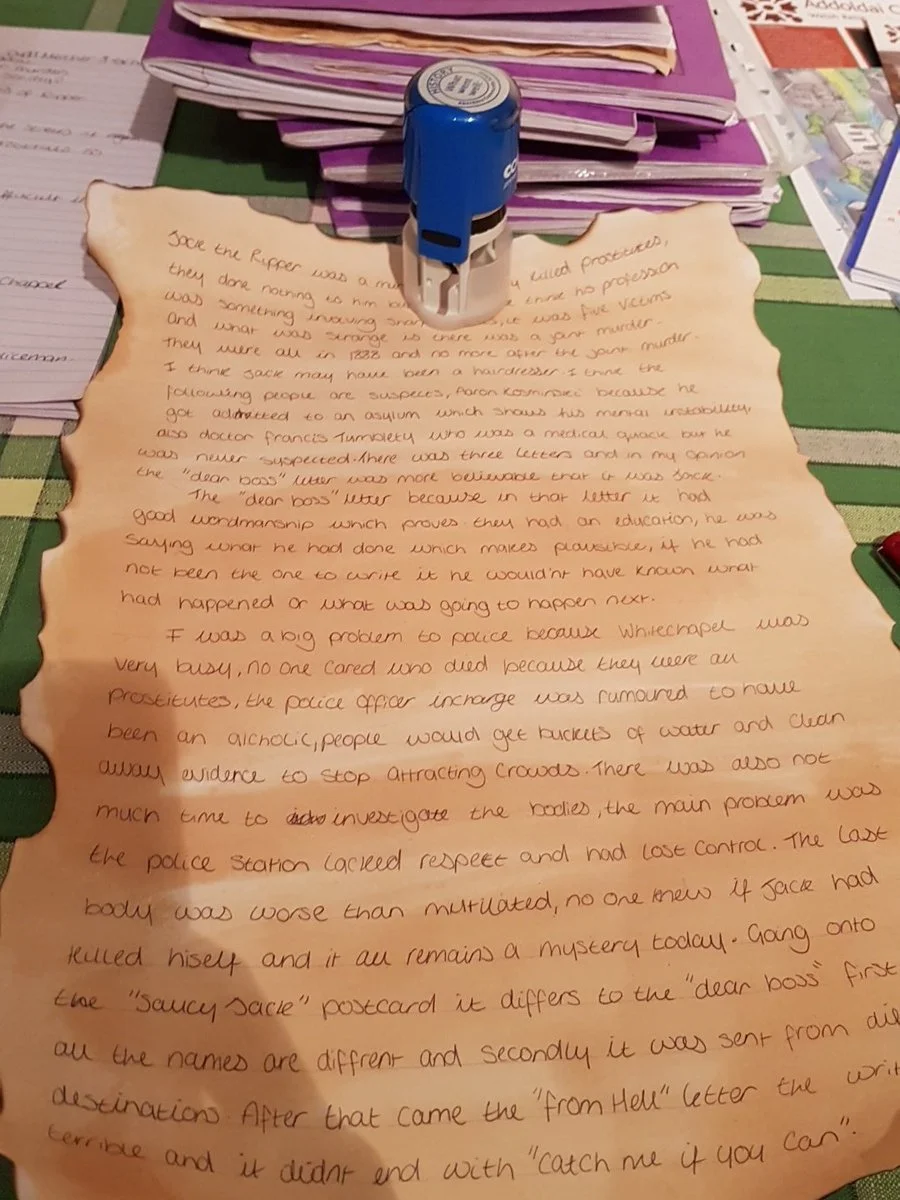 Addoldai C
HISTORY
co
murders
of Ripper
Chappel
iceman.
Jack the Ripper was a mur y killed prostitutes,
they done nothing to him bu e think his profession
was something involving shar s, it was five victims
and what was strange is there was a joint murder.
They were all in 1888 and no more after the joint murder.
I think Jack may have been a hairdresser. I think the
following people are suspects, Aaron Kosminski because he
got admitted to an asylum which shows his mental instability,
also doctor Francis Tumblety who was a medical quack but he
was never suspected. There was three letters and in my opinion
the "dear boss" letter was more believable that it was Jack.
The "dear boss" letter because in that letter it had
good wordmanship which proves they had an education, he was
saying what he had done which makes plausible, if he had
not been the one to write it he wouldn't have known what
had happened or what was going to happen next.
I was a big problem to police because Whitechapel was
very busy, no one cared who died because they were all
prostitutes, the police officer incharge was rumoured to have
been an alcholic, people would get buckets of water and clean
away evidence to stop attracting crowds. There was also not
much time to investigate the bodies, the main problem was
the police station lacked respect and had lost control. The last
body was worse than mutilated, no one knew if Jack had
killed hiself and it all remains a mystery today. Going onto
the "Saucy Jack" postcard it differs to the "dear boss" first
all the names are diffrent and secondly it was sent from die
destinations. After that came the "from Hell" letter the writ
terrible and it didnt end with "catch me if you can".